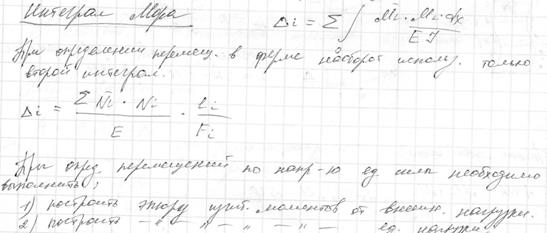 Интеграл Мора
Δi = Σ ∫ M̄i · Mi · dx / EJ
При определении перемещ. в ферме наоборот использ. только
второй интеграл.
Δi = Σ N̄i · Ni / E · li / Fi
При опред. перемещений по напр-ю ед. силы необходимо
выполнить:
1) построить эпюру изгиб. моментов от внешн. нагрузки.
2) построить -〃- 〃 - 〃 - 〃 - ед. нагрузки.